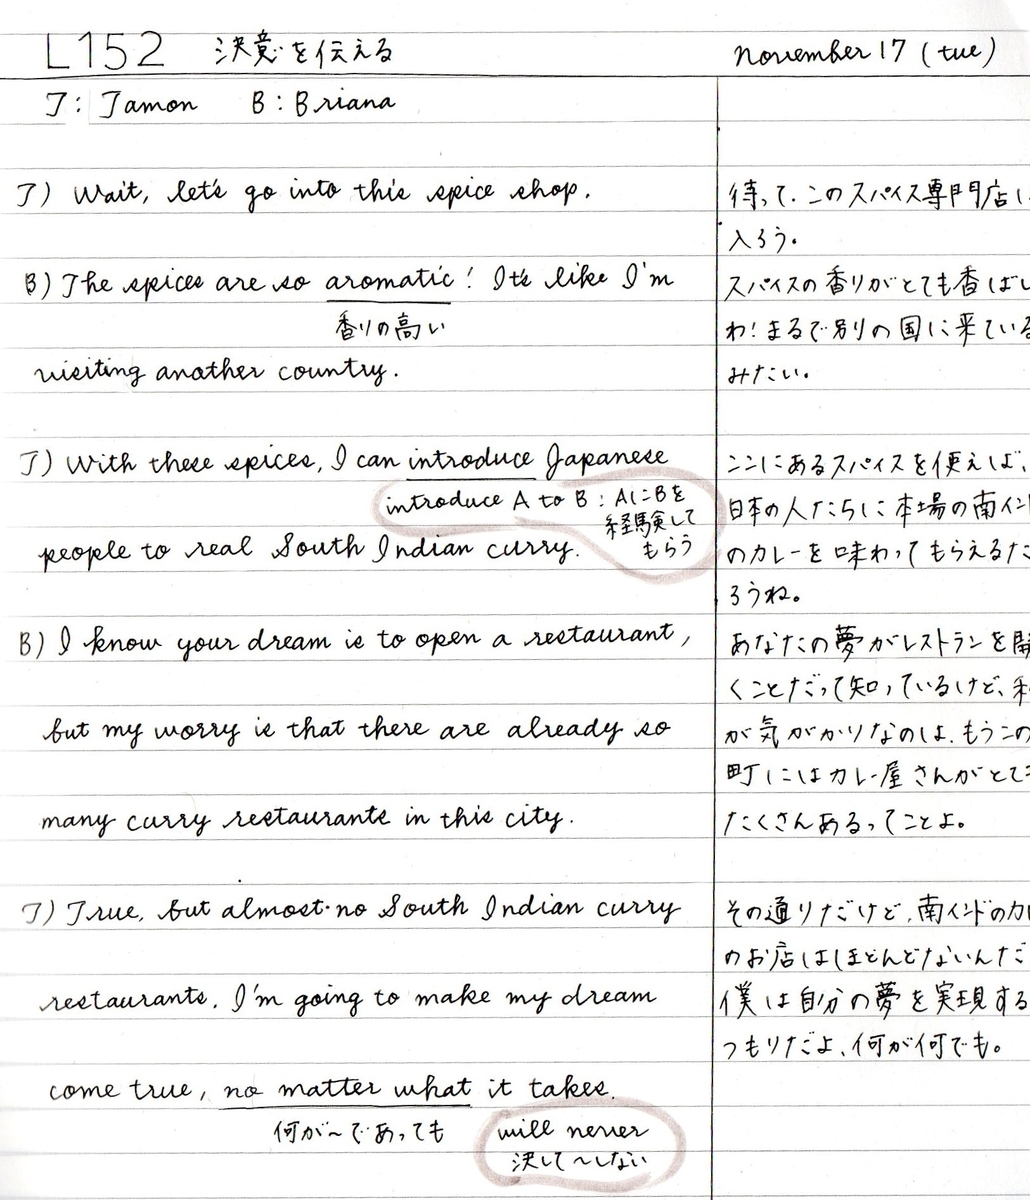 L152 決意を伝える november 17 (tue)
J: Jamon B: Briana
J) Wait, let's go into this spice shop.
待って、このスパイス専門店に
入ろう。
B) The spices are so aromatic! It's like I'm
香りの高い
visiting another country.
スパイスの香りがとても香ばし
わ!まるで別の国に来ている
みたい。
J) With these spices, I can introduce Japanese
introduce A to B : AにBを
経験して
もらう
people to real South Indian curry.
ここにあるスパイスを使えば、
日本の人たちに本場の南イン
のカレーを味わってもらえるだ
ろうね。
B) I know your dream is to open a restaurant,
but my worry is that there are already so
many curry restaurants in this city.
あなたの夢がレストランを開
くことだって知っているけど、
が気がかりなのは、もうこの
町にはカレー屋さんがとて
たくさんあるってことよ。
J) True, but almost no South Indian curry
restaurants. I'm going to make my dream
come true, no matter what it takes.
何が〜であっても
will never
決して〜しない
その通りだけど、南インドのカ
のお店はほとんどないんだ
僕は自分の夢を実現する
つもりだよ、何が何でも。